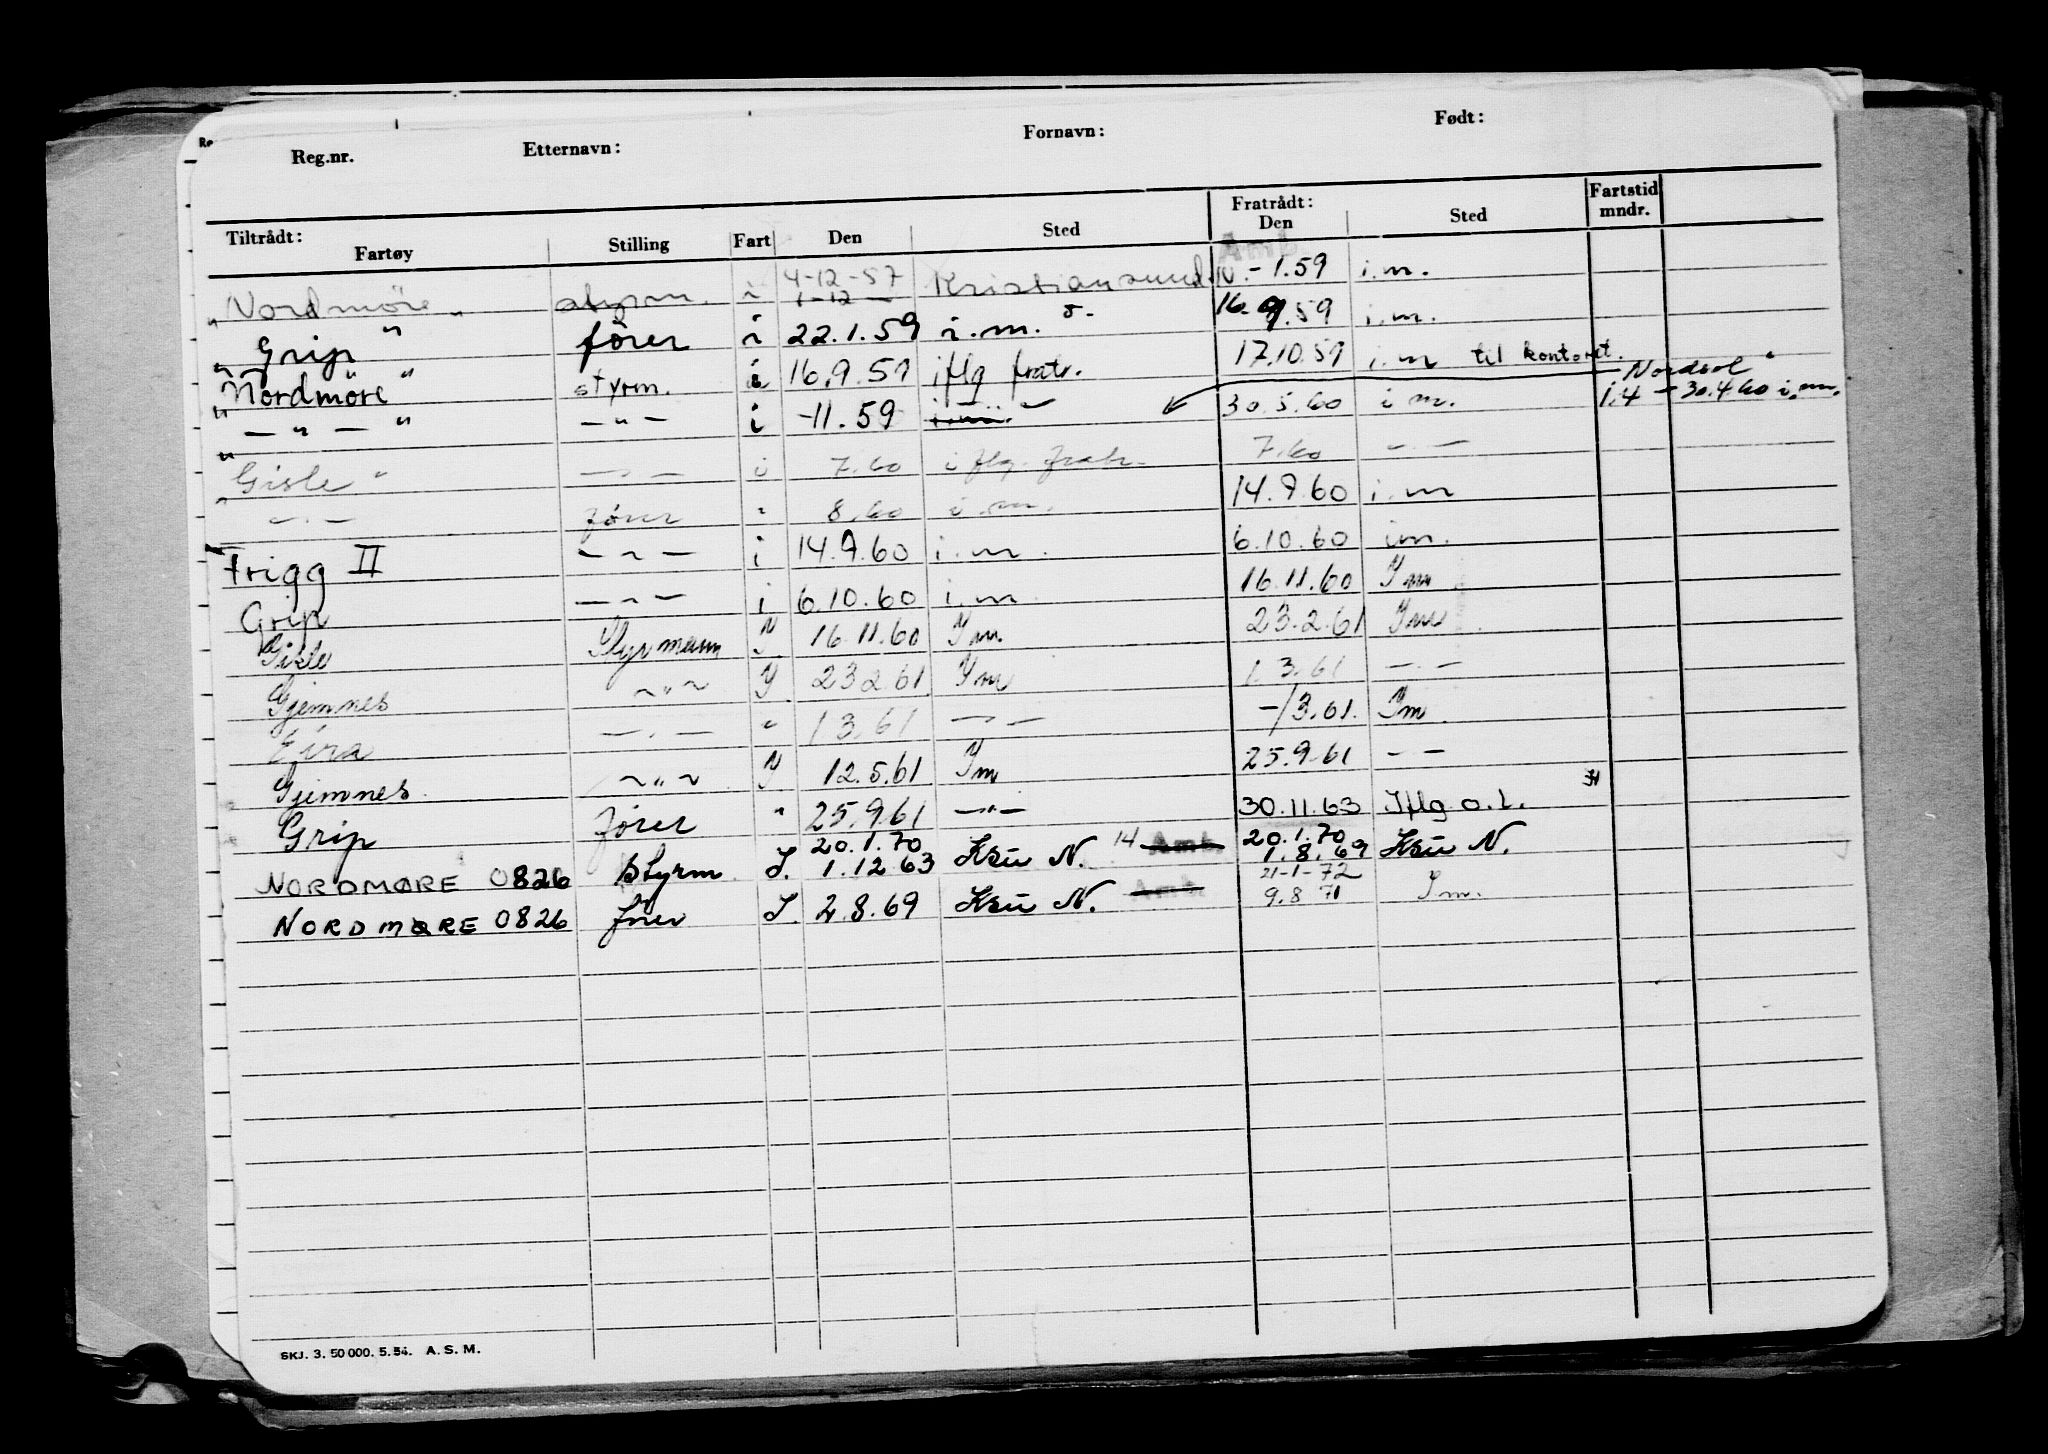 Reg.nr. Etternavn: Fornavn: Født:
Tiltrådt: Fratrådt: Fartstid
Fartøy Stilling Fart Den Sted Den Sted mndr.
Amb.
4-12-57
"Nordmöre" styrm. i 1-12 Kristiansund. -1.59 i.m.
"Grip" fører i 22.1.59 i.m. 16.9.59 i.m.
"Nordmöre" styrm. i 16.9.59 iflg fratr. 17.10.59 i.m til kontoret.
"Nordsol"
"-"-" -"- i -11.59 30.5.60 i m. 1.4 - 30.4.60 i.m.
"Gisle" -"- i 7.60 i flg. fratr. 7.60 -"-
" -"- fører " 8.60 i.m. 14.9.60 i.m
Frigg II -"- i 14.9.60 i.m. 6.10.60 i m.
Grip -"- i 6.10.60 i.m. 16.11.60 Im
Gisle Styrmann I 16.11.60 Im. 23.2.61 Im
Gjemnes -"- I 23 2 61 Im 1 3.61 -"-
Eira -"- " 1 3.61 -"- -/3.61. Im
Gjemnes -"- I 12.5.61 Im 25.9.61 -"-
Grip fører " 25.9.61 -"- 30.11.63 Iflg o.l.
20.1.70 14 Amb. 20.1.70
NORDMØRE 0826 Styrm I. 1.12 63 Ksu N. 1.8.69 Ksu N.
21-1-72
NORDMØRE 0826 fører I. 2.8.69 Ksu N. Amb. 9.8 71 Im.
SKJ. 3. 50 000. 5. 54. A. S. M.